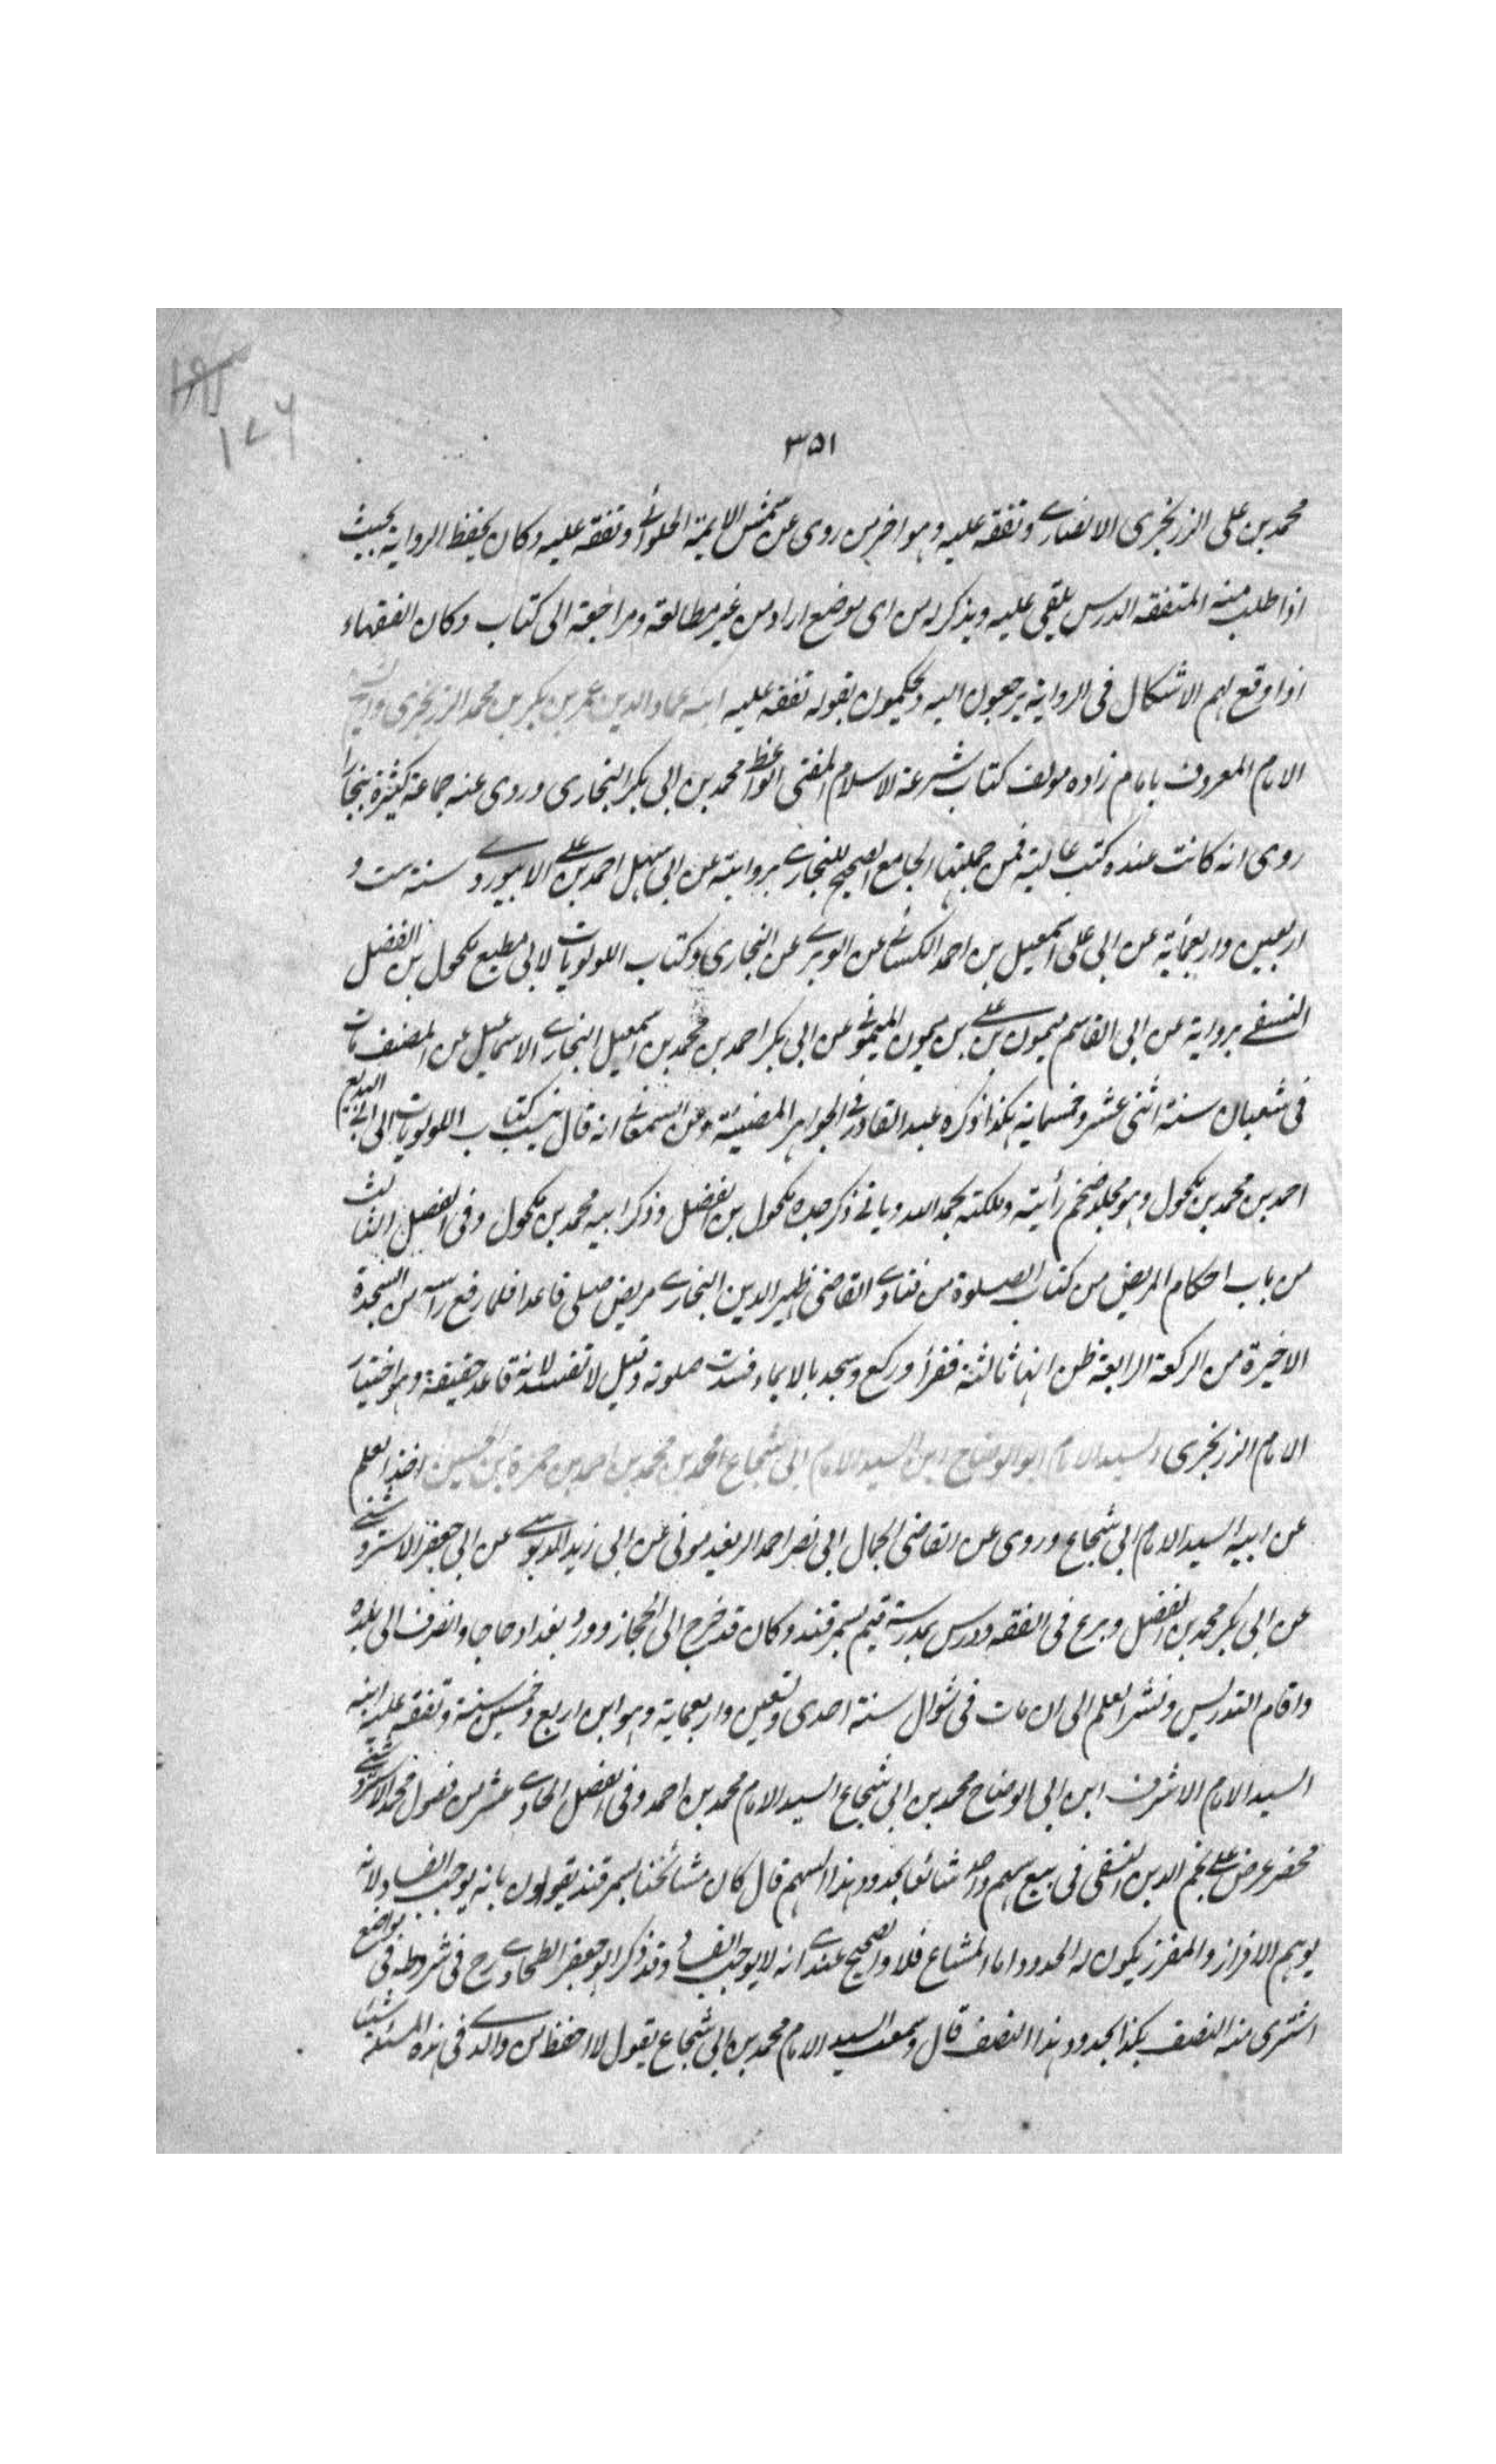 ١٧٦
٣٥١
محمد بن على الزرنجرى الانصارے وتفقه عليه وهو اخر من روى عن شمس الايمة الحلوانے وتفقه عليه وكان يحفظ الرواية بحيث
اذا طلب منه المتفقه الدرس يلقى عليه ويذكر له من اى موضع اراد من غير مطالعة ومراجعة الى كتاب وكان الفقهاء
اذا وقع لهم الاشكال فى الرواية يرجعون اليه ويحكمون بقوله تفقه عليه ابنه عماد الدين عمر بن بكر بن محمد الزرنجرى
الامام المعروف بامام زاده مولف كتاب شرعة الاسلام المفتى الواعظ محمد بن ابى بكر البخارى وروى عنه جماعة كثيرة ببخارا
روى انه كانت عنده كتب عالية فمن جملتها الجامع الصحيح للبخارے بروايته عن ابى سهل احمد بن علے الابيوردے سنة ست و
اربعين واربعمائة عن ابى على اسمعيل بن احمد الكسانے عن الفربرے عن البخارى وكتاب اللولويات لابى مطيع مكحول بن الفضل
النسفے برواية عن ابى القاسم ميمون بن علے بن ميمون الميمونے عن ابى بكر احمد بن محمد بن اسمعيل البخارے الاسماعيل عن المصنف مات
فى شعبان سنة اثنى عشر وخمسماية هكذا ذكره عبد القادر فے الجواهر المضيئة وعن السمعانے انه قال نسب كتاب اللولويات الى ابى البديع
احمد بن محمد بن مكحول وهو مجلد ضخم رأيته وملكته بحمد الله وياتے ذكر جده مكحول بن الفضل وذكر ابيه محمد بن مكحول وفى الفصل الثالث
من باب احكام المريض من كتاب الصلوة من فتاوے القاضى ظهير الدين البخارے مريض صلى قاعدا فلما رفع رأسه من السجدة
الاخيرة من الركعة الرابعة ظن انها ثالثة فقرأ وركع وسجد بالايماء فسدت صلوته وقيل لا تفسد لانه قاعد حقيقة وهو اختيار
الامام الزرنجرى السيد الامام ابو الوضاح ابن السيد الامام ابى شجاع محمد بن محمد بن احمد بن حمزة بن الحسين اخذ العلم
عن ابيه السيد الامام ابى شجاع وروى عن القاضى الجمال ابى نصر احمد الريغدمونى عن ابى زيد الدبوسے عن ابى جعفر الاستروشنے
عن ابى بكر محمد بن الفضل وبرع فى الفقه ودرس بمدرسة قثم بسمرقند وكان قد خرج الى الحجاز وورد بغداد حاجا وانصرف الى بلده
واقام التدريس ونشر العلم الى ان مات فى شوال سنة احدى وتسعين واربعماية وهو ابن اربع وخمسين سنة وتفقه عليه ابنه
السيد الامام الاشرف ابن ابى الوضاح محمد بن ابى شجاع السيد الامام محمد بن احمد وفى الفصل الحادے عشر من فصول محمد الاستروشنے
محضر عرض علے نجم الدين النسفى فى بيع سهم واحد شائعا بحدود هذا السهم قال كان مشائخنا بسمرقند يقولون بانه يوجب الفساد لانه
يوهم الافراز والمفرز يكون له الحدود اما المشاع فلا والصحيح عندے انه لا يوجب الفساد وقد ذكر ابو جعفر الطحاوے رح فى شروطه فى مواضع
اشترى منه النصف بكذا بحدود هذا النصف قال وسمعت السيد الامام محمد بن ابى شجاع يقول لا احفظ من والدے فى هذه المسئلة شيئا